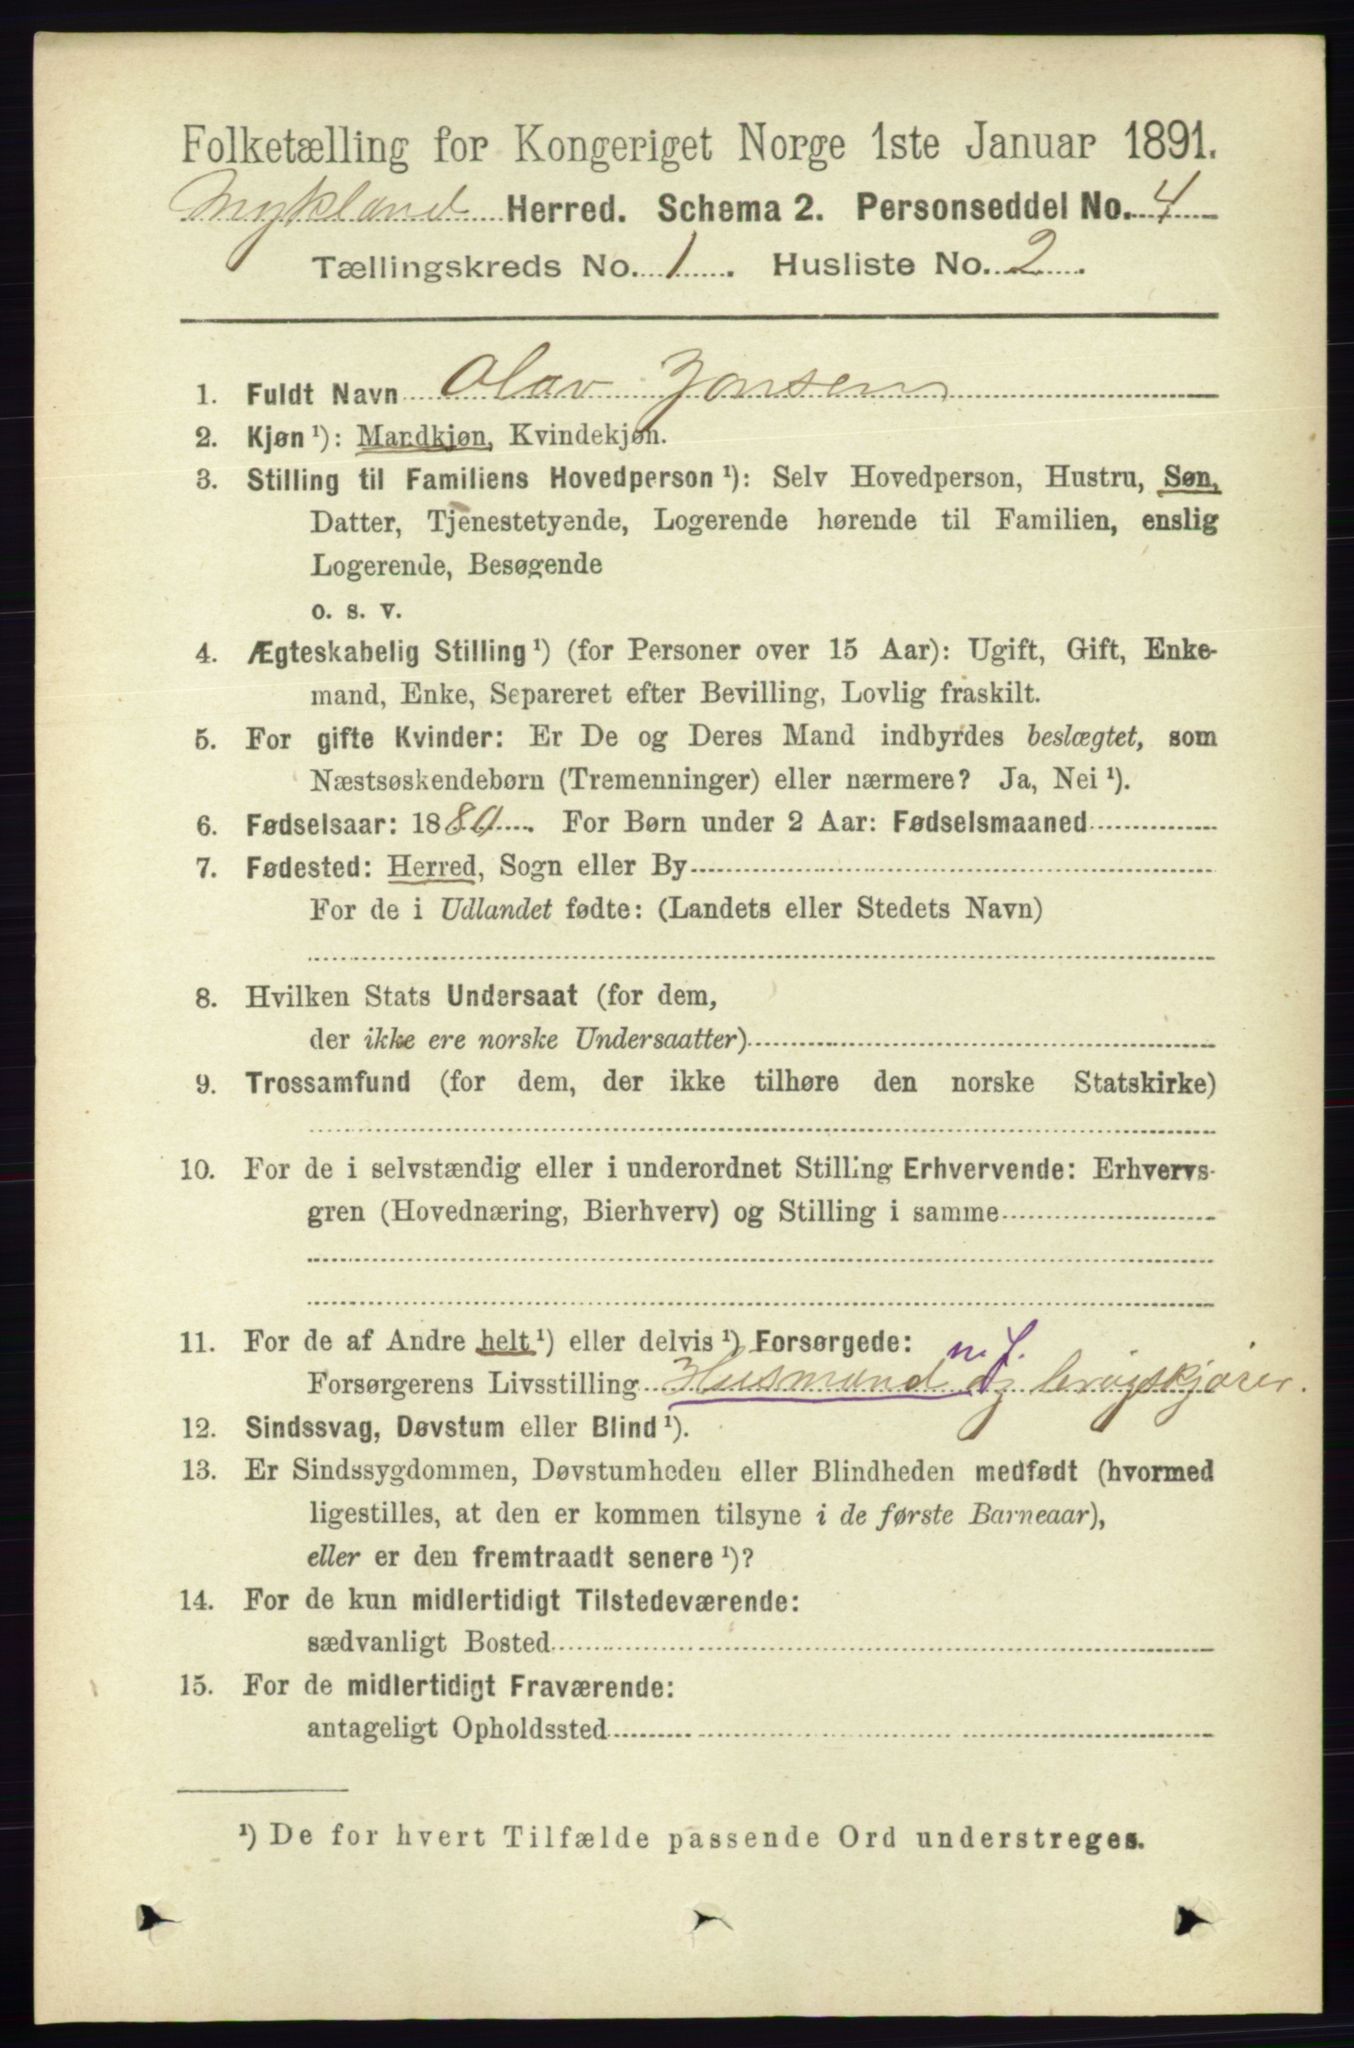 Folketælling for Kongeriget Norge 1ste Januar 1891.
Mykland Herred. Schema 2. Personseddel No. 4
Tællingskreds No. 1. Husliste No. 2.
1. Fuldt Navn Olav Jonsen
2. Kjøn ¹): Mandkjøn, Kvindekjøn.
3. Stilling til Familiens Hovedperson ¹): Selv Hovedperson, Hustru, Søn,
Datter, Tjenestetyende, Logerende hørende til Familien, enslig
Logerende, Besøgende
o. s. v.
4. Ægteskabelig Stilling ¹) (for Personer over 15 Aar): Ugift, Gift, Enke-
mand, Enke, Separeret efter Bevilling, Lovlig fraskilt.
5. For gifte Kvinder: Er De og Deres Mand indbyrdes beslægtet, som
Næstsøskendebørn (Tremenninger) eller nærmere? Ja, Nei ¹).
6. Fødselsaar: 1880. For Børn under 2 Aar: Fødselsmaaned
7. Fødested: Herred, Sogn eller By
For de i Udlandet fødte: (Landets eller Stedets Navn)
8. Hvilken Stats Undersaat (for dem,
der ikke ere norske Undersaatter)
9. Trossamfund (for dem, der ikke tilhøre den norske Statskirke)
10. For de i selvstændig eller i underordnet Stilling Erhvervende: Erhvervs-
gren (Hovednæring, Bierhverv) og Stilling i samme
11. For de af Andre helt ¹) eller delvis ¹) Forsørgede: m. J.
Forsørgerens Livsstilling Husmand og
12. Sindssvag, Døvstum eller Blind ¹).
13. Er Sindssygdommen, Døvstumheden eller Blindheden medfødt (hvormed
ligestilles, at den er kommen tilsyne i de første Barneaar),
eller er den fremtraadt senere ¹)?
14. For de kun midlertidigt Tilstedeværende:
sædvanligt Bosted
15. For de midlertidigt Fraværende:
antageligt Opholdssted
¹) De for hvert Tilfælde passende Ord understreges.